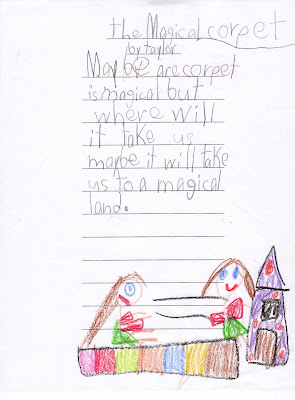 the Magical corpet
by taylor
Maybe are corpet
is magical but
where will
it take us
maybe it will take
us to a magical
land.